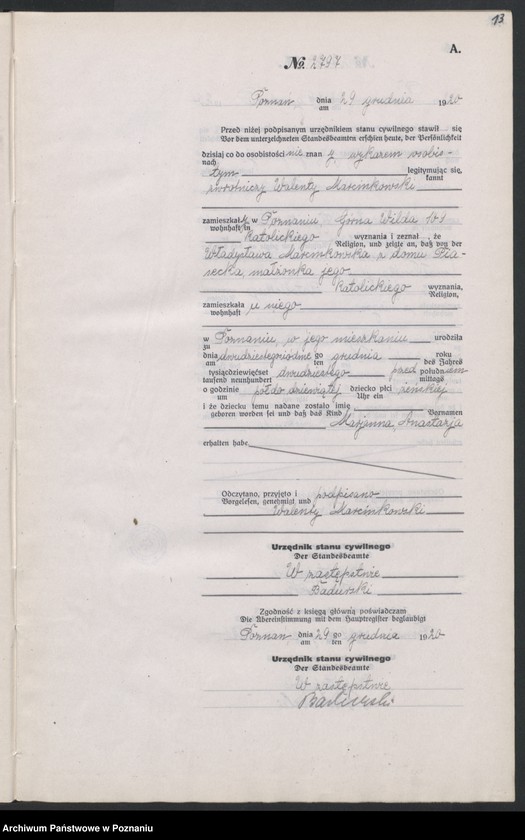 13
A.
No. 2797
Poznań dnia 29 grudnia 1920
am
Przed niżej podpisanym urzędnikiem stanu cywilnego stawił się
Vor dem unterzeichneten Standesbeamten erschien heute, der Persönlichkeit
dzisiaj co do osobistości nie znan y, wykazem osobis-
nach
tym legitymując się,
kannt
zwrotniczy Walenty Marcinkowski
zamieszkał y w Poznaniu Górna Wilda 101
wohnhaft in
katolickiego wyznania i zeznał, że
Religion, und zeigte an, daß von der
Władysława Marcinkowska z domu Pia-
secka, małżonka jego
katolickiego wyznania,
Religion,
zamieszkała u niego
wohnhaft
w Poznaniu, w jego mieszkaniu urodziła
zu
dnia dwudziestego siódme go grudnia roku
am ten des Jahres
tysiącdziewięćset dwudziestego przed południem
tausend neunhundert mittags
o godzinie pół do dziewiątej dziecko płci żeńskiej
um Uhr ein
i że dziecku temu nadane zostało imię
geboren worden sei und daß das Kind Vornamen
Marjanna, Anastazja
erhalten habe.
Odczytano, przyjęto i podpisano
Vorgelesen, genehmigt und
Walenty Marcinkowski
Urzędnik stanu cywilnego
Der Standesbeamte
W zastępstwie
Badurski
Zgodność z księgą główną poświadczam
Die Übereinstimmung mit dem Hauptregister beglaubigt
Poznań dnia 29 go grudnia 1920
am ten
Urzędnik stanu cywilnego
Der Standesbeamte
W zastępstwie
Archiwum Państwowe w Poznaniu